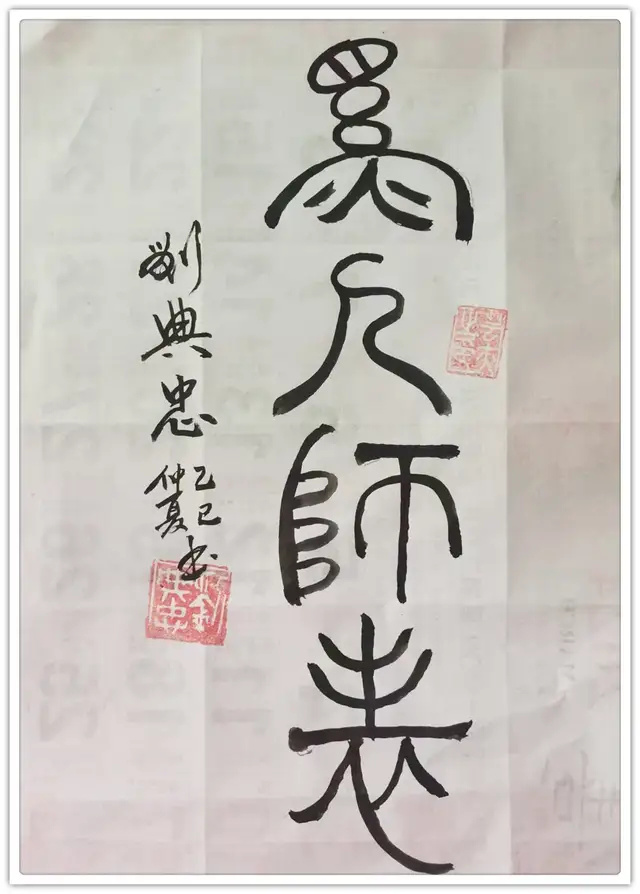 為人師表
劉典忠
乙巳
仲夏書